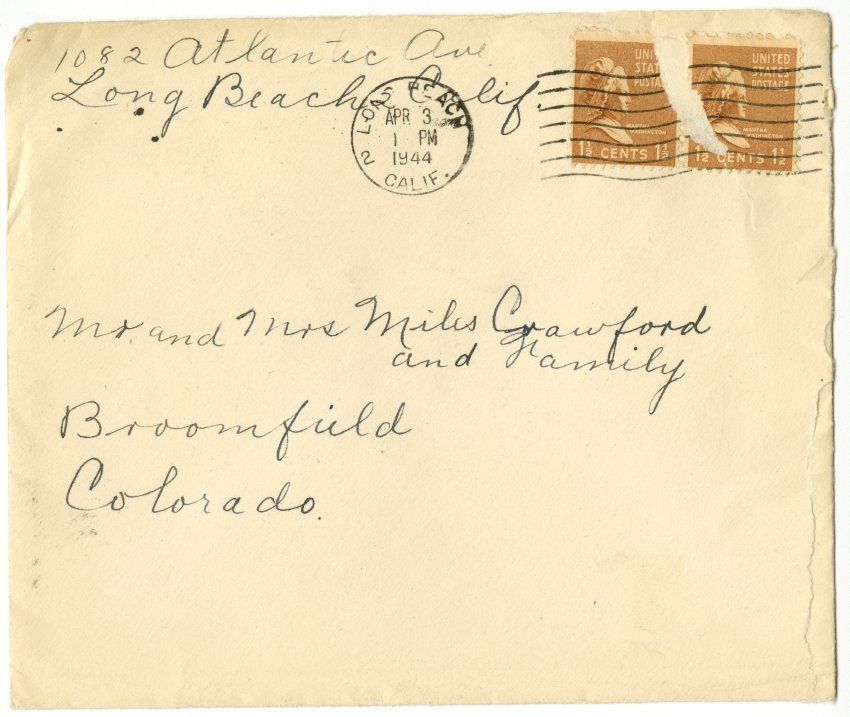 1082 Atlantic Ave
Long Beach, Calif.
LONG BEACH
APR 3
1 PM
1944
2 CALIF.
UNI
STAT
POSTA
MARTHA
WASHINGTON
1½ CENTS 1½
UNITED
STATES
POSTAGE
MARTHA
WASHINGTON
1½ CENTS 1½
Mr. and Mrs Miles Crawford
and Family
Broomfield
Colorado.